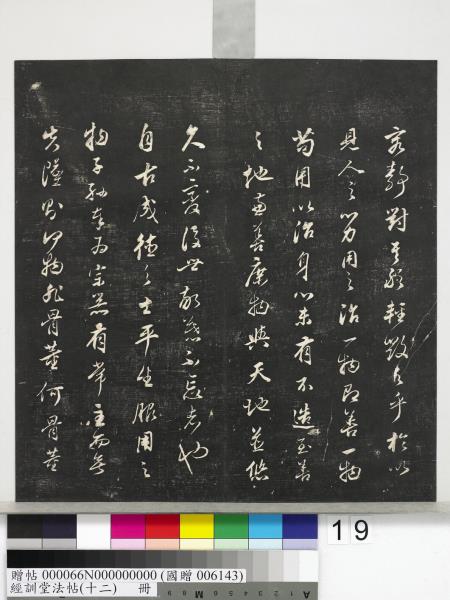 靜對其輕毀者乎於以
見人之心力用之治一物即善一物
苟用以治身心未有不造至善
之地善庶物與天地並悠
久不變後世敬慕不忘者也
自古成德之士平生服用之
物子孫奉為宗器有常而無
失墜則物非骨董何骨董
19
贈帖 000066N000000000 (國贈 006143)
經訓堂法帖(十二) 冊